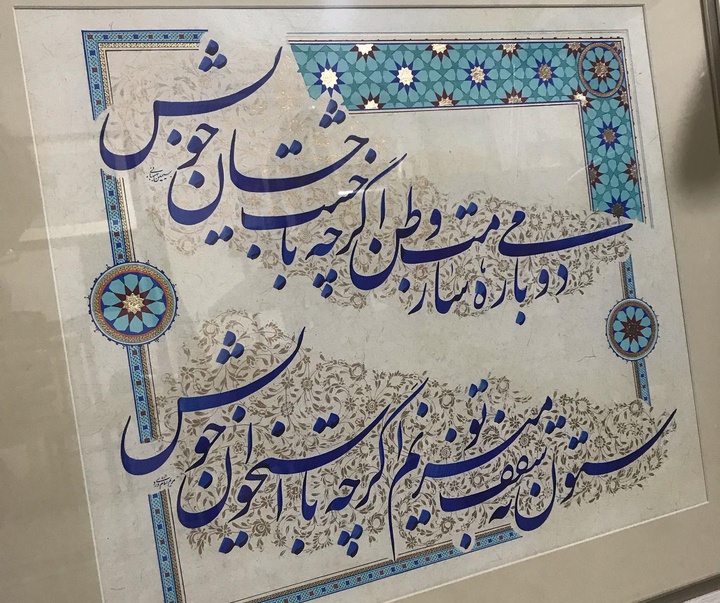 دوباره می سازمت وطن اگرچه با خشت جان خویش
سیمین بهبهانی
ستون به سقف تو می زنم اگرچه با استخوان خویش